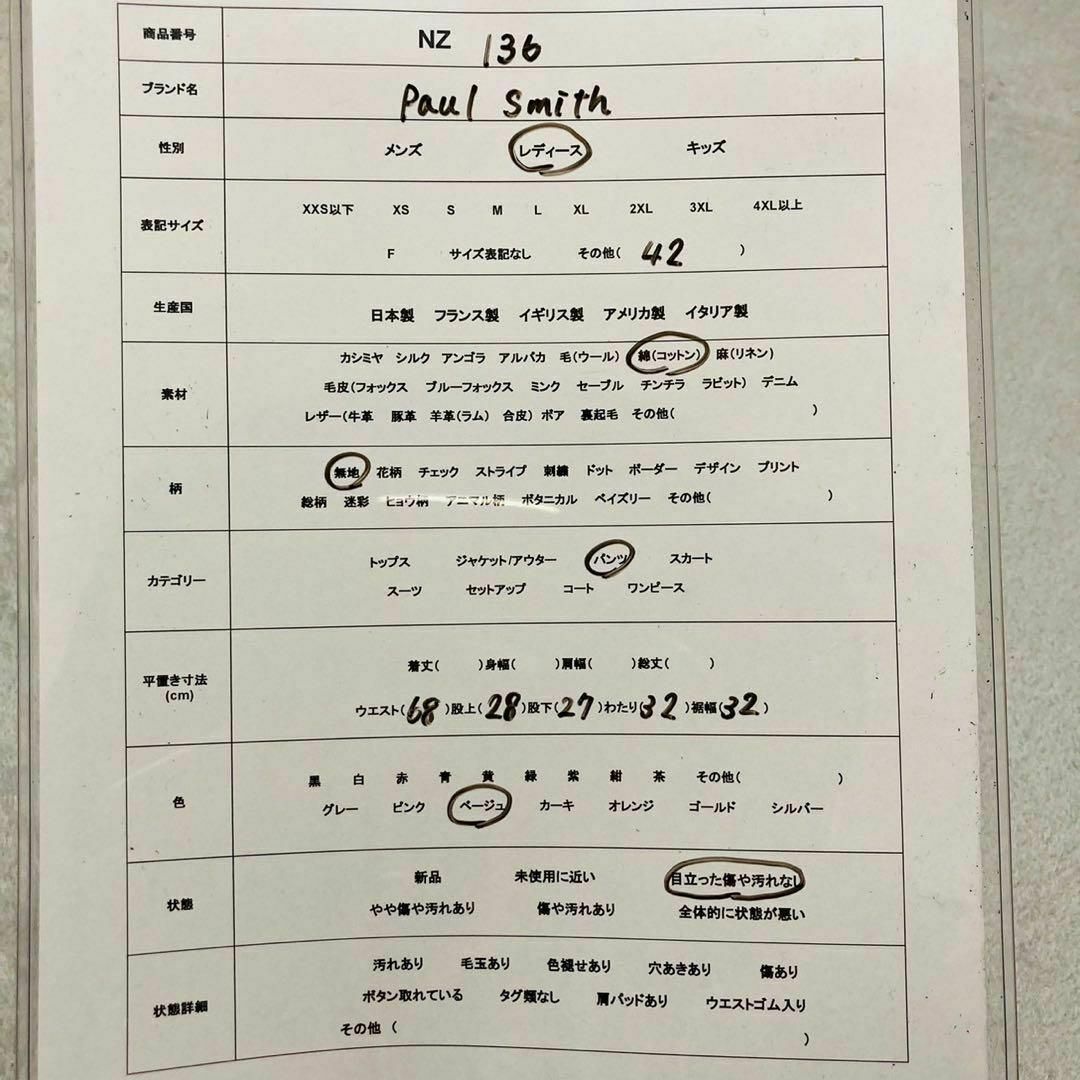 商品番号 NZ 136
ブランド名 Paul Smith
性別 メンズ レディース キッズ
XXS以下 XS S M L XL 2XL 3XL 4XL以上
表記サイズ
F サイズ表記なし その他( 42 )
生産国 日本製 フランス製 イギリス製 アメリカ製 イタリア製
カシミヤ シルク アンゴラ アルパカ 毛(ウール) 綿(コットン) 麻(リネン)
素材 毛皮(フォックス ブルーフォックス ミンク セーブル チンチラ ラビット) デニム
レザー(牛革 豚革 羊革(ラム) 合皮) ボア 裏起毛 その他( )
柄 無地 花柄 チェック ストライプ 刺繍 ドット ボーダー デザイン プリント
総柄 迷彩 ヒョウ柄 アニマル柄 ボタニカル ペイズリー その他( )
トップス ジャケット/アウター パンツ スカート
カテゴリー
スーツ セットアップ コート ワンピース
着丈( )身幅( )肩幅( )総丈( )
平置き寸法
(cm)
ウエスト(68)股上(28)股下(27)わたり(32)裾幅(32)
黒 白 赤 青 黄 緑 紫 紺 茶 その他( )
色 グレー ピンク ベージュ カーキ オレンジ ゴールド シルバー
新品 未使用に近い 目立った傷や汚れなし
状態 やや傷や汚れあり 傷や汚れあり 全体的に状態が悪い
汚れあり 毛玉あり 色褪せあり 穴あきあり 傷あり
状態詳細 ボタン取れている タグ類なし 肩パッドあり ウエストゴム入り
その他 ( )